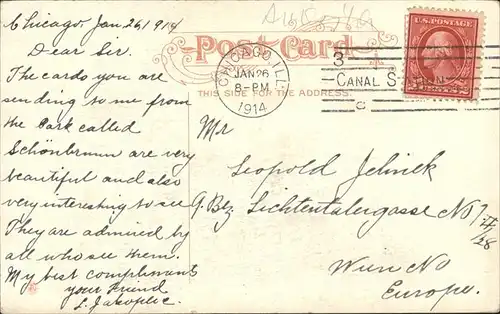 Chicago Jan 26, 1914
Dear Sir.
The cards you are
sending to me from
the Park called
Schönbrunn are very
beautiful and also
very interesting to see
They are admired by
all who see them.
My best compliments
your Friend
Post Card
THIS SIDE FOR THE ADDRESS.
CHICAGO, ILL.
JAN 26
8-PM
1914
3
CANAL STATION
C
U.S. POSTAGE
Mr
Leopold Jelinek
9. Bez. Lichtentalergasse No
Wien No
Europe.